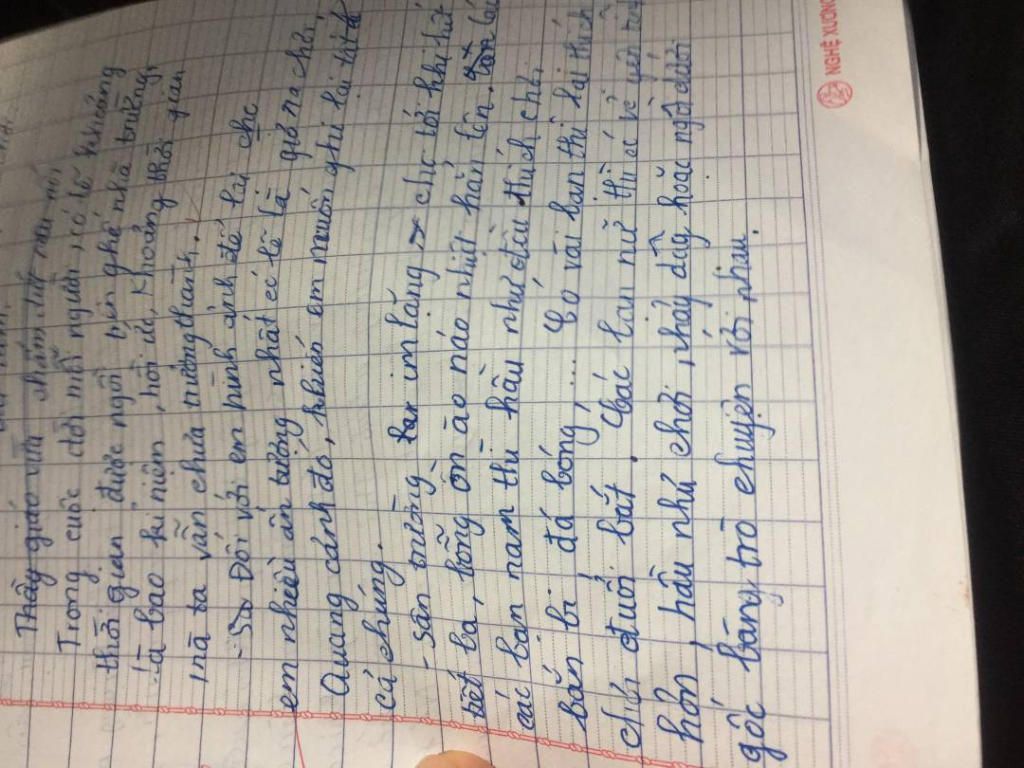 Thầy giáo vừa chấm
Trong cuộc đời mỗi người, có lẽ khoảng
thời gian được ngồi trên ghế nhà trường,
là bao kỉ niệm, hồi ức, khoảng thời gian
mà ta vẫn chưa trưởng thành.
- Đối với em hình ảnh để lại cho
em nhiều ấn tượng nhất có lẽ là giờ ra chơi
Quang cảnh đó, khiến em muốn ghi lại tất
cả chúng.
- Sân trường im lặng chờ tới khi hết
tiết ba, bỗng ồn ào náo nhiệt hẳn lên.
các bạn nam thì hầu như đều thích chơi
bắn bi, đá bóng,... Có vài bạn thì lại thích
chơi đuổi bắt. Các bạn nữ thì có vẻ yên
hơn, hầu như chơi nhảy dây hoặc ngồi dưới
gốc bàng trò chuyện với nhau.
NGHỆ XƯƠNG